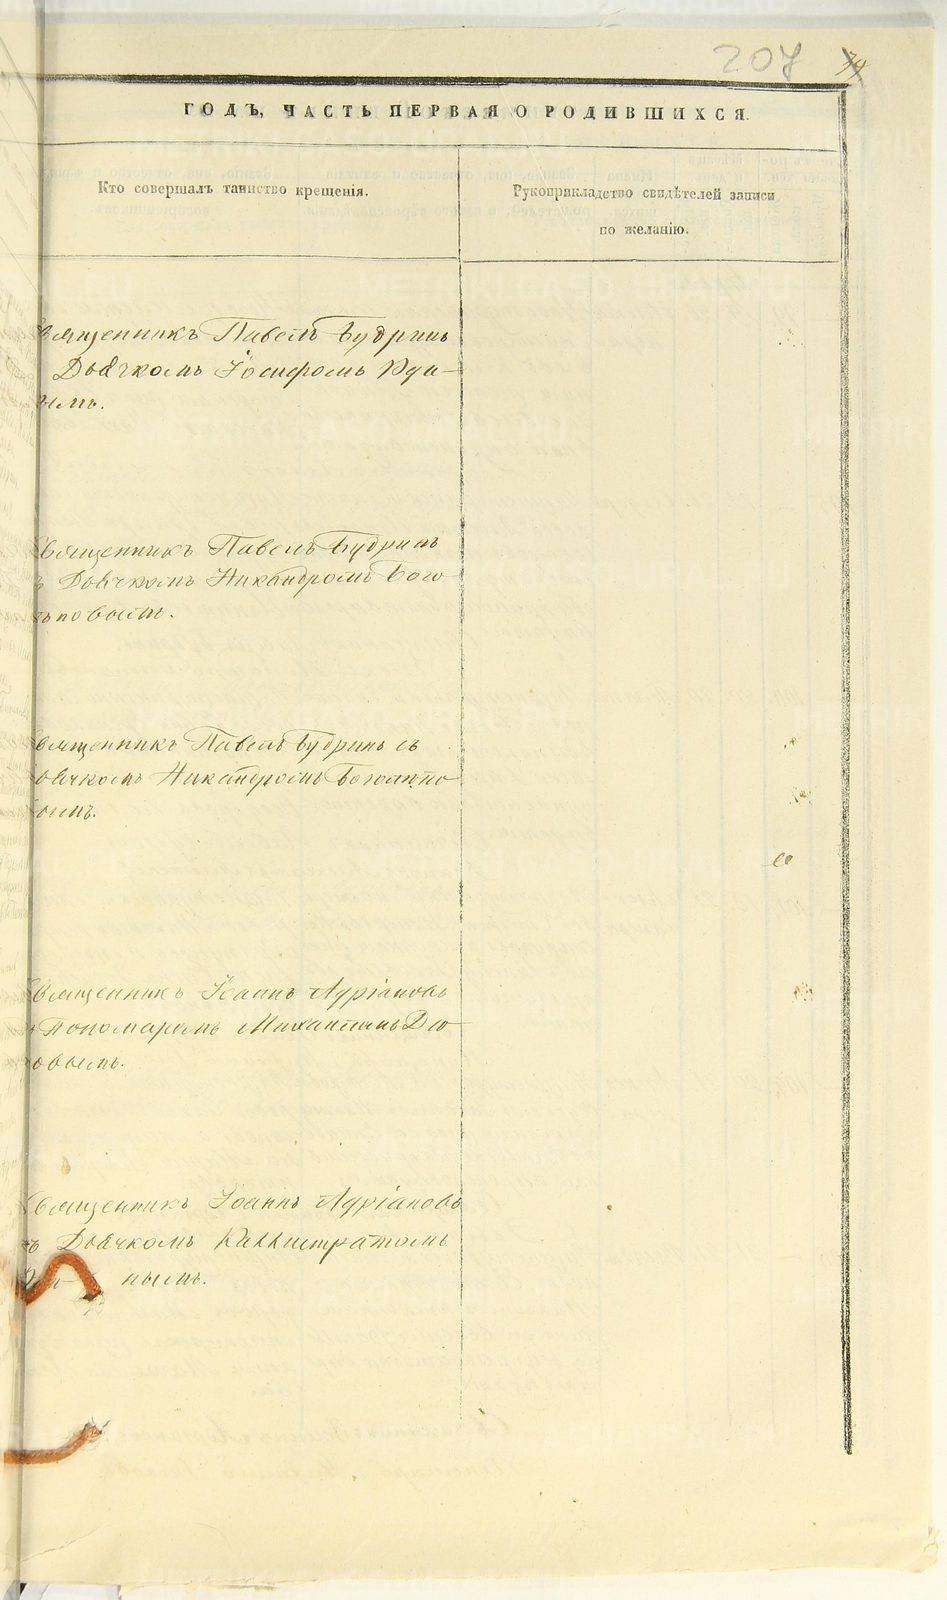 207
ГОДЪ, ЧАСТЬ ПЕРВАЯ О РОДИВШИХСЯ.
Кто совершалъ таинство крещенія.
Рукоприкладство свидѣтелей записи
по желанію.
вященникъ Павелъ Будринъ
Дьячкомъ Іосифомъ Уди-
ымъ.
Священникъ Павелъ Будринъ
ъ Дьячкомъ Никандромъ Бого-
вымъ.
вященникъ Павелъ Будринъ съ
ьячкомъ Никандромъ
ымъ.
Священникъ Іоаннъ Адріановъ
Пономаремъ
овымъ.
Священникъ Іоаннъ Адріановъ
ъ Дьячкомъ Каллистратомъ
нымъ.
METRIKI.GASO-URAL.RU